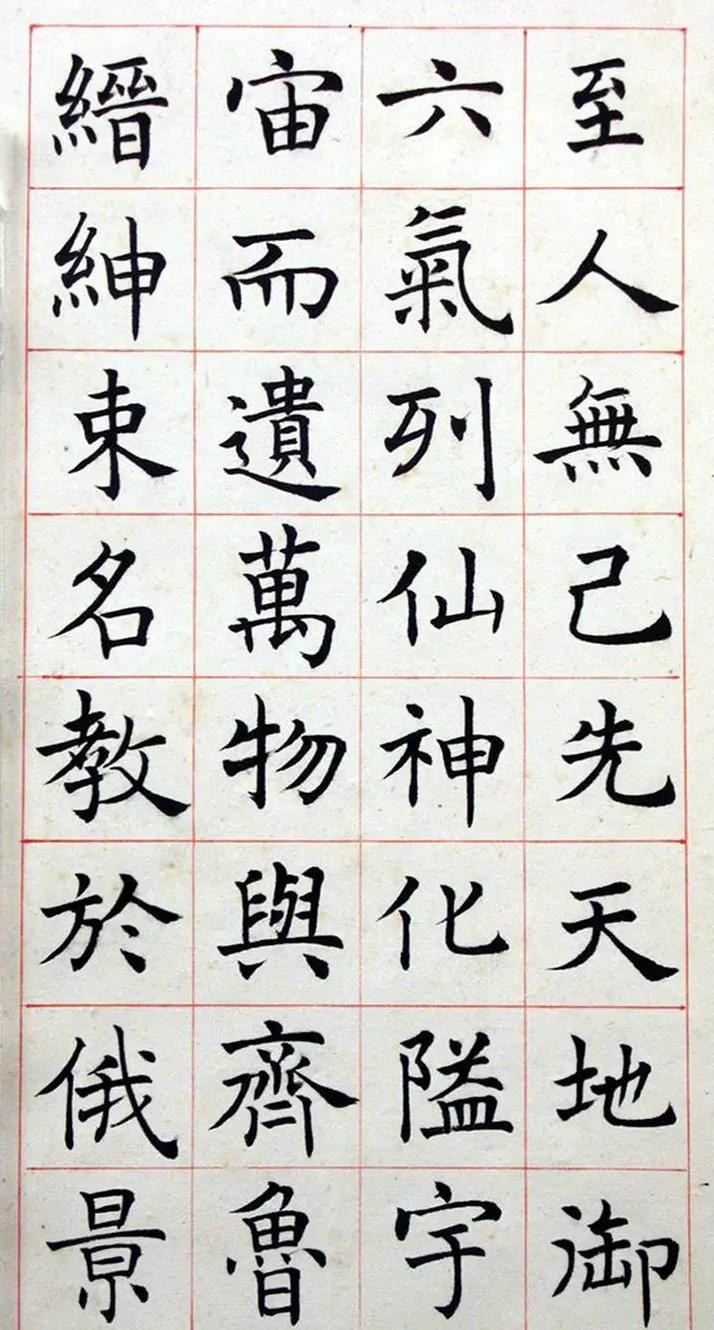 至人無己先天地御
六氣列仙神化隘宇
宙而遺萬物與齊魯
縉紳束名教於俄景